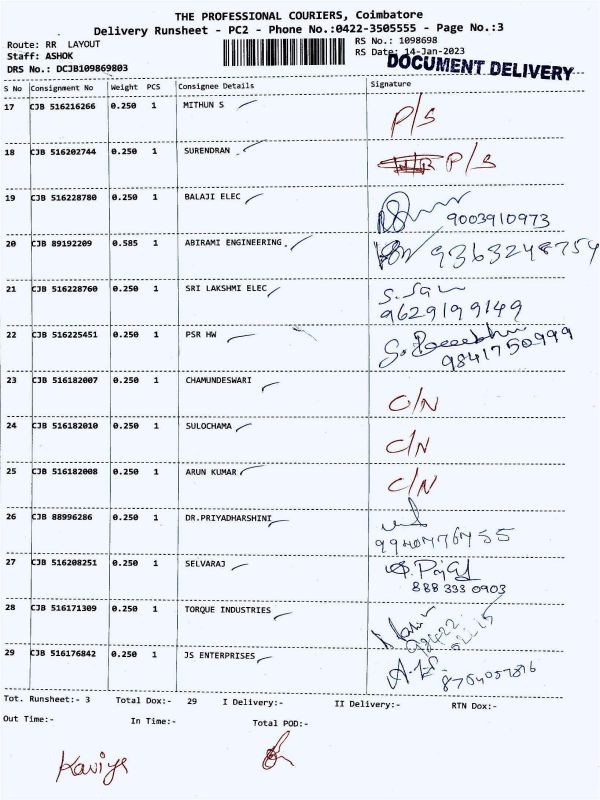 THE PROFESSIONAL COURIERS, Coimbatore
Delivery Runsheet - PC2 - Phone No.:0422-3505555 - Page No.:3
Route: RR LAYOUT
RS No.: 1098698
Staff: ASHOK
RS Date: 14-Jan-2023
DRS No.: DCJB109869803
DOCUMENT DELIVERY
S No Consignment No Weight PCS Consignee Details Signature
17 CJB 516216266 0.250 1 MITHUN S P/S
18 CJB 516202744 0.250 1 SURENDRAN P/S
19 CJB 516228780 0.250 1 BALAJI ELEC 9003910973
20 CJB 89192209 0.585 1 ABIRAMI ENGINEERING. 9363248754
21 CJB 516228760 0.250 1 SRI LAKSHMI ELEC
9629199149
22 CJB 516225451 0.250 1 PSR HW
9841750999
23 CJB 516182007 0.250 1 CHAMUNDESWARI C/N
24 CJB 516182010 0.250 1 SULOCHAMA C/N
25 CJB 516182008 0.250 1 ARUN KUMAR C/N
26 CJB 88996286 0.250 1 DR.PRIYADHARSHINI
9940776455
27 CJB 516208251 0.250 1 SELVARAJ
888 333 0903
28 CJB 516171309 0.250 1 TORQUE INDUSTRIES
98422
29 CJB 516176842 0.250 1 JS ENTERPRISES
Tot. Runsheet:- 3 Total Dox:- 29 I Delivery:- II Delivery:- RTN Dox:-
Out Time:- In Time:- Total POD:-
Kaviya